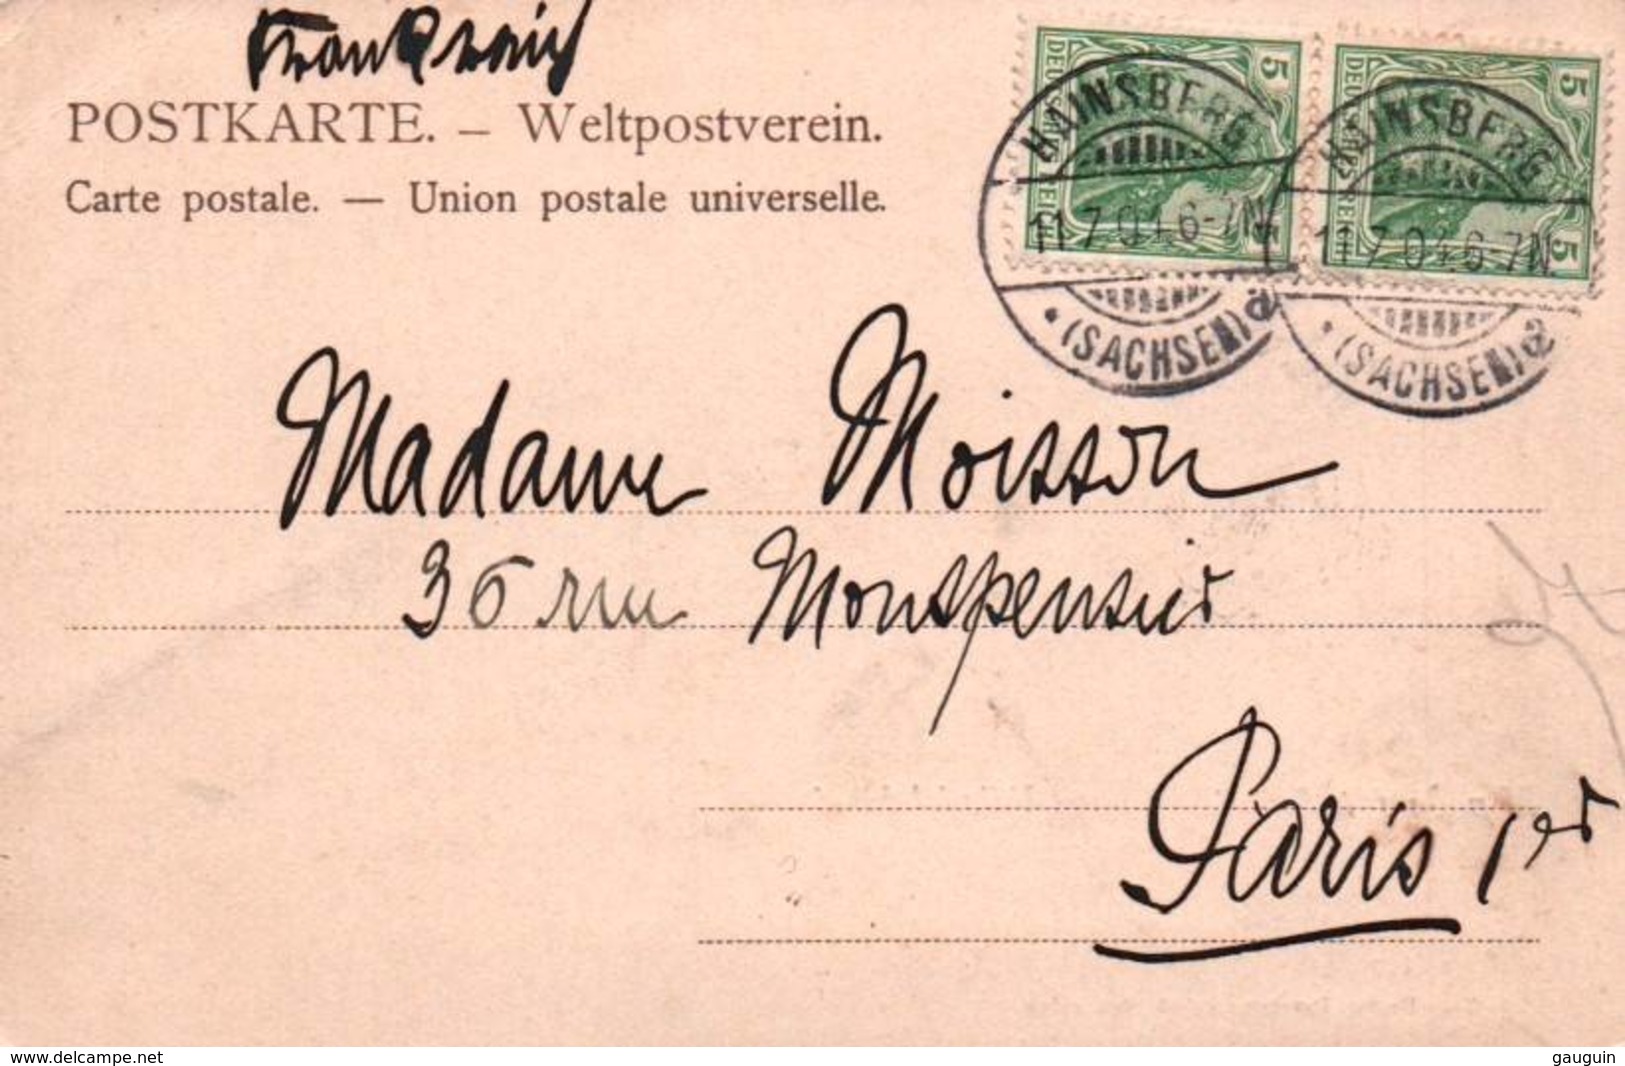 Frankreich
POSTKARTE. – Weltpostverein.
Carte postale. — Union postale universelle.
5 5
DEUTSCHES REICH
HAINSBERG
11.7.04.6-7N
(SACHSEN) a
5 5
HAINSBERG
11.7.04.6-7N
(SACHSEN) a
Madame Moisson
36 rue Montpensier
Paris 1er
www.delcampe.net
gauguin